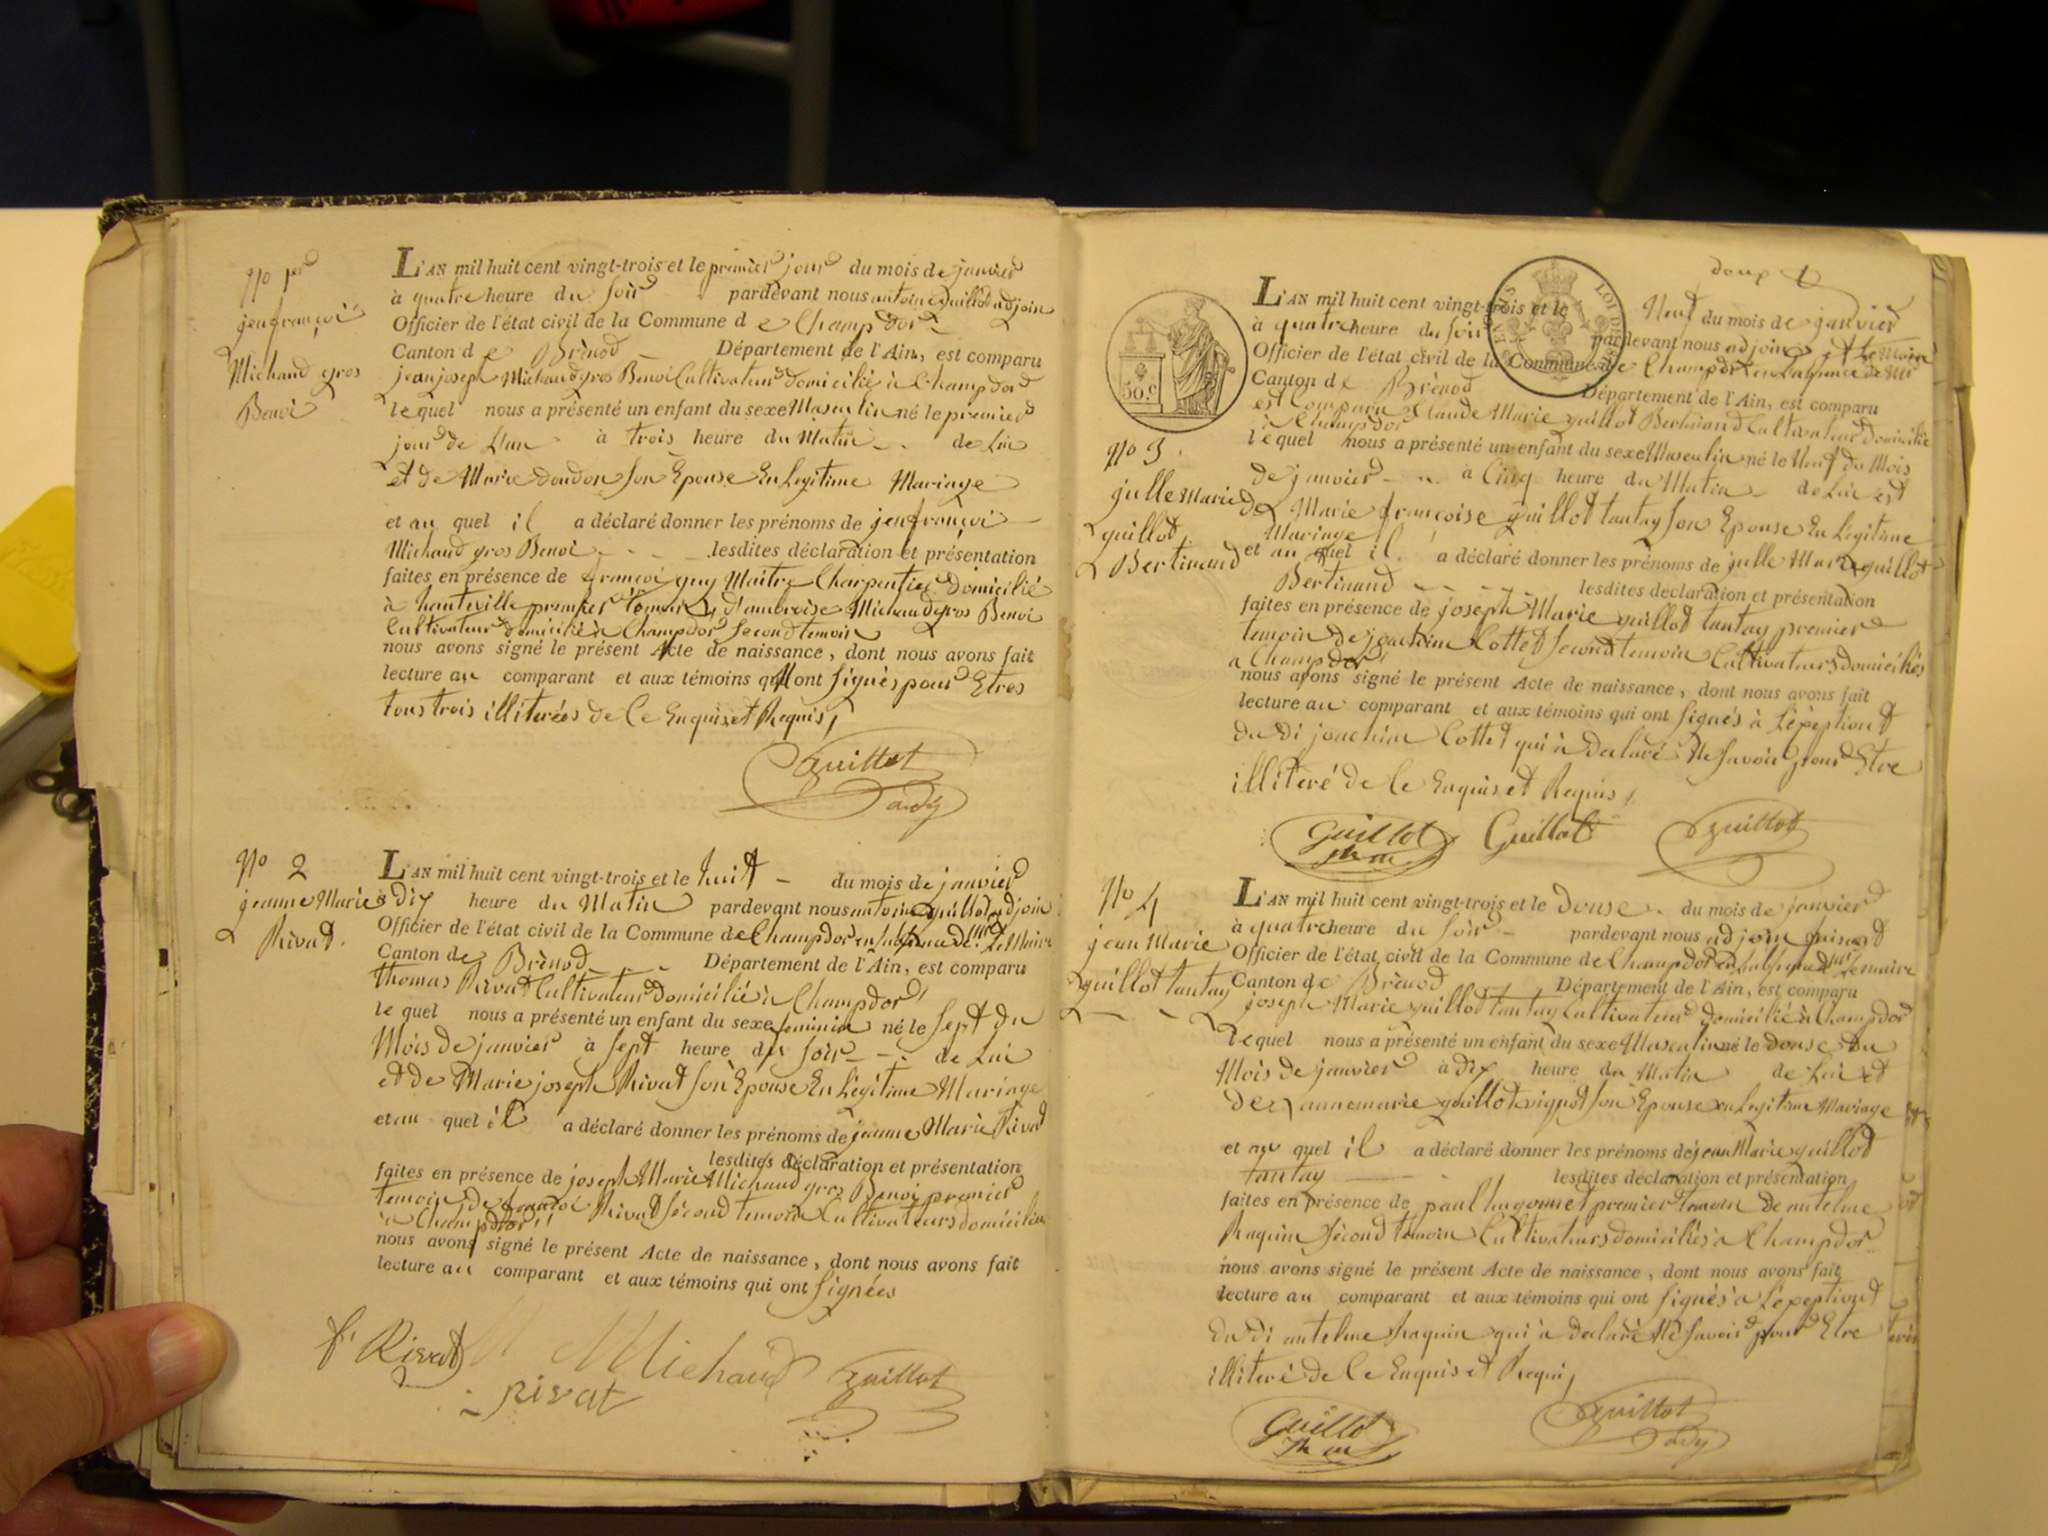 No 1er
jenfrançoi
Michaud gros
Benoi
L'AN mil huit cent vingt-trois et le premier jour du mois de janvier
à quatre heure du soir pardevant nous antoine guillot adjoin
Officier de l'état civil de la Commune de Champdor
Canton de Brènod Département de l'Ain, est comparu
jean joseph Michaud gros Benoi Cultivateur domicilié à Champdor
le quel nous a présenté un enfant du sexe Masculin né le premier
jour de L'an à trois heure du Matin de Lui
et de Marie doudon son Epouse En Legitime Mariage
et au quel il a déclaré donner les prénoms de jenfrançoi
Michaud gros Benoi lesdites déclaration et présentation
faites en présence de françoi guy Maitre Charpentier domicilié
à hauteville premier temoin d'ambroise Michaud gros Benoi
Cultivateur domicilié à Champdor second temoin
nous avons signé le présent Acte de naissance, dont nous avons fait
lecture au comparant et aux témoins qui ont signés pour Etres
tous trois illiterées de Ce Enquis et Requis
Guillot
adj
No 2
jeanne Marie
Rivat
L'AN mil huit cent vingt-trois et le huit du mois de janvier
à dix heure du Matin pardevant nous antoine guillot adjoin
Officier de l'état civil de la Commune de Champdor en labsence de Mr Le Maire
Canton de Brènod Département de l'Ain, est comparu
thomas Rivat Cultivateur domicilié à Champdor
le quel nous a présenté un enfant du sexe feminin né le sept du
Mois de janvier à sept heure du soir de Lui
et de Marie joseph Rivat son Epouse En Légitime Mariage
et au quel il a déclaré donner les prénoms de jeanne Marie Rivat
lesdites déclaration et présentation
faites en présence de joseph Marie Michaud gros Benoi premier
temoin de françoi Rivat sécond temoin Cultivateurs domiciliés
à Champdor
nous avons signé le présent Acte de naissance, dont nous avons fait
lecture au comparant et aux témoins qui ont signées
f Rivat Michaud Guillot
Rivat
doux
50 c
No 3
julle Marie
guillot
Bertinand
L'AN mil huit cent vingt-trois et le Neuf du mois de janvier
à quatre heure du soir pardevant nous adjoin
Officier de l'état civil de la Commune de Champdor en labsence de Mr
Canton de Brènod Département de l'Ain, est comparu
est Comparu Claude Marie guillot Bertinand Cultivateur domicilié
à Champdor
le quel nous a présenté un enfant du sexe Masculin né le Neuf du Mois
de janvier à Cinq heure du Matin de Lui et
de Marie françoise guillot tantay son Epouse En Légitime
Mariage
et au quel il a déclaré donner les prénoms de julle Marie guillot
Bertinand lesdites déclaration et présentation
faites en présence de joseph Marie guillot tantay premier
temoin de joachim Cottet second temoin Cultivateurs domiciliés
a Champdor
nous avons signé le présent Acte de naissance, dont nous avons fait
lecture au comparant et aux témoins qui ont signés à L'éxeption
du di joachim Cottet qui à declaré Ne savoir pour Etre
illiteré de Ce Enquis et Requis
Guillot Guillot Guillot
No 4
jean Marie
guillot tantay
L'AN mil huit cent vingt-trois et le douse du mois de janvier
à quatre heure du soir pardevant nous adjoin
Officier de l'état civil de la Commune de Champdor en labsence de Mr Lemaire
Canton de Brènod Département de l'Ain, est comparu
joseph Marie guillot tantay Cultivateur domicilié à Champdor
le quel nous a présenté un enfant du sexe Masculin né le douse du
Mois de janvier à dix heure du Matin de Lui et
de annemarie guillot vignot son Epouse en Legitime Mariage
et au quel il a déclaré donner les prénoms de jean Marie guillot
tantay lesdites déclaration et présentation
faites en présence de paul hugonnet premier temoin de antelme
Raquin sécond temoin Cultivateurs domiciliés a Champdor
nous avons signé le présent Acte de naissance, dont nous avons fait
lecture au comparant et aux témoins qui ont signés a L'éxeption
du di antelme Raquin qui à declaré Ne savoir pour Etre
illiteré de Ce Enquis et Requi
Guillot Guillot
adj